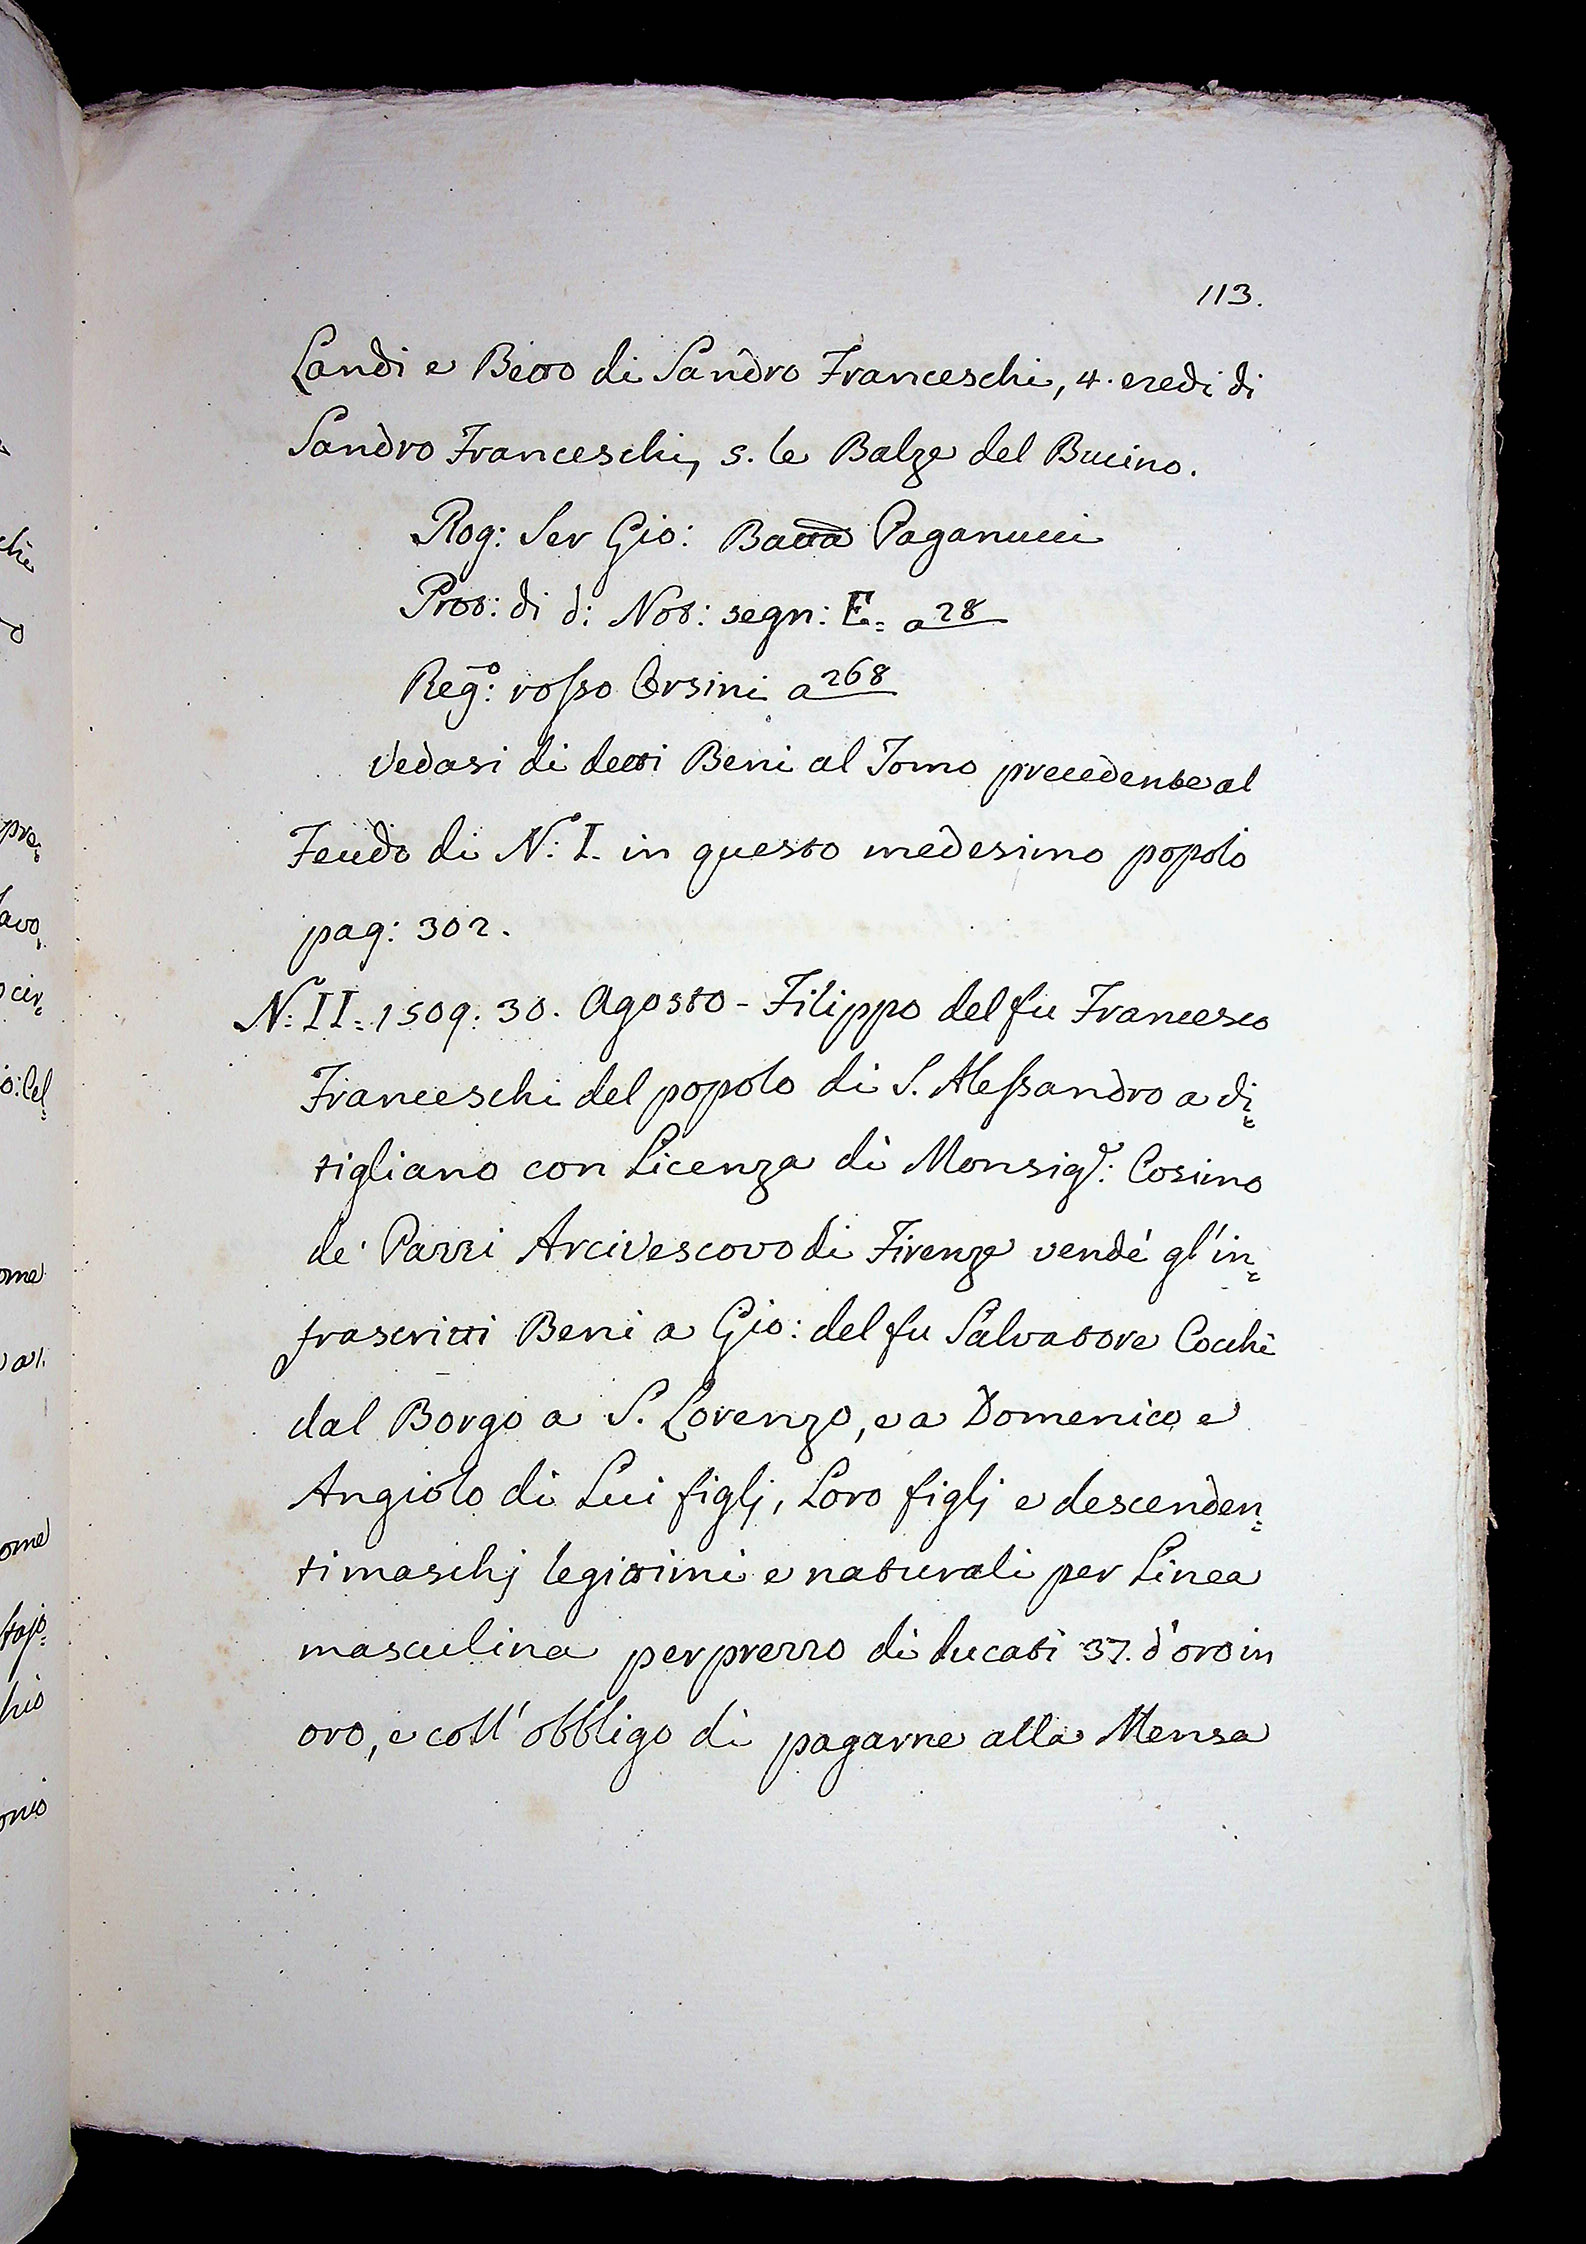 113.
Landi e Betto di Sandro Franceschi, 4. eredi di
Sandro Franceschi, 5. le Balze del Bucino.
Rog: Ser Gio: Batta Paganucci
Prot: di d: Not: segn: E= a 28
Reg.º: rosso Orsini a 268
Vedasi di detti Beni al Tomo precedente al
Feudo di N.º: I. in questo medesimo popolo
pag: 302.
N.º: II= 1509. 30. Agosto - Filippo del fu Francesco
Franceschi del popolo di S. Alessandro a Vi=
tigliano con Licenza di Monsig.r: Cosimo
de' Pazzi Arcivescovo di Firenze vendé gl'in=
frascritti Beni a Gio: del fu Salvatore Cocchi
dal Borgo a S. Lorenzo, e a Domenico e
Angiolo di Lui figlj, Loro figlj e descenden=
ti maschj legittimi e naturali per Linea
masculina per prezzo di ducati 37. d'oro in
oro, e coll'obbligo di pagarne alla Mensa